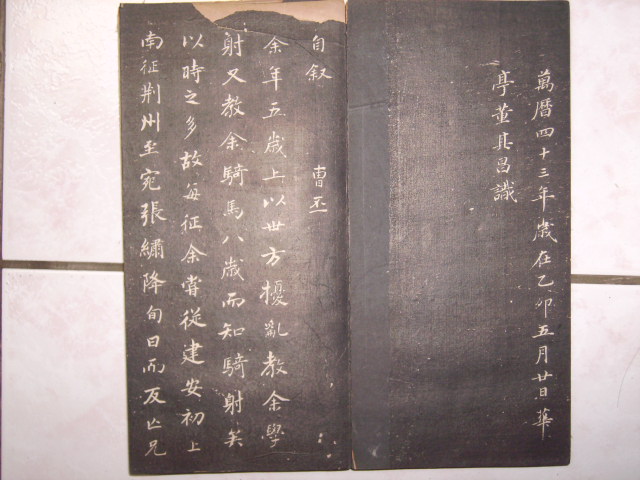 萬曆四十三年歲在乙卯五月廿日華
亭董其昌識
自叙 曹丕
余年五歲上以世方擾亂教余學
射又教余騎馬八歲而知騎射矣
以時之多故每征余嘗從建安初上
南征荆州至宛張繡降旬日而反亡兄